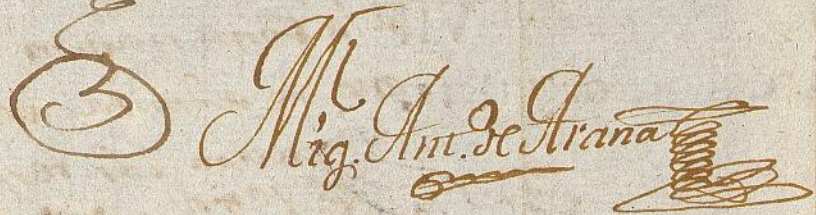 Mig. Ant. de Arana